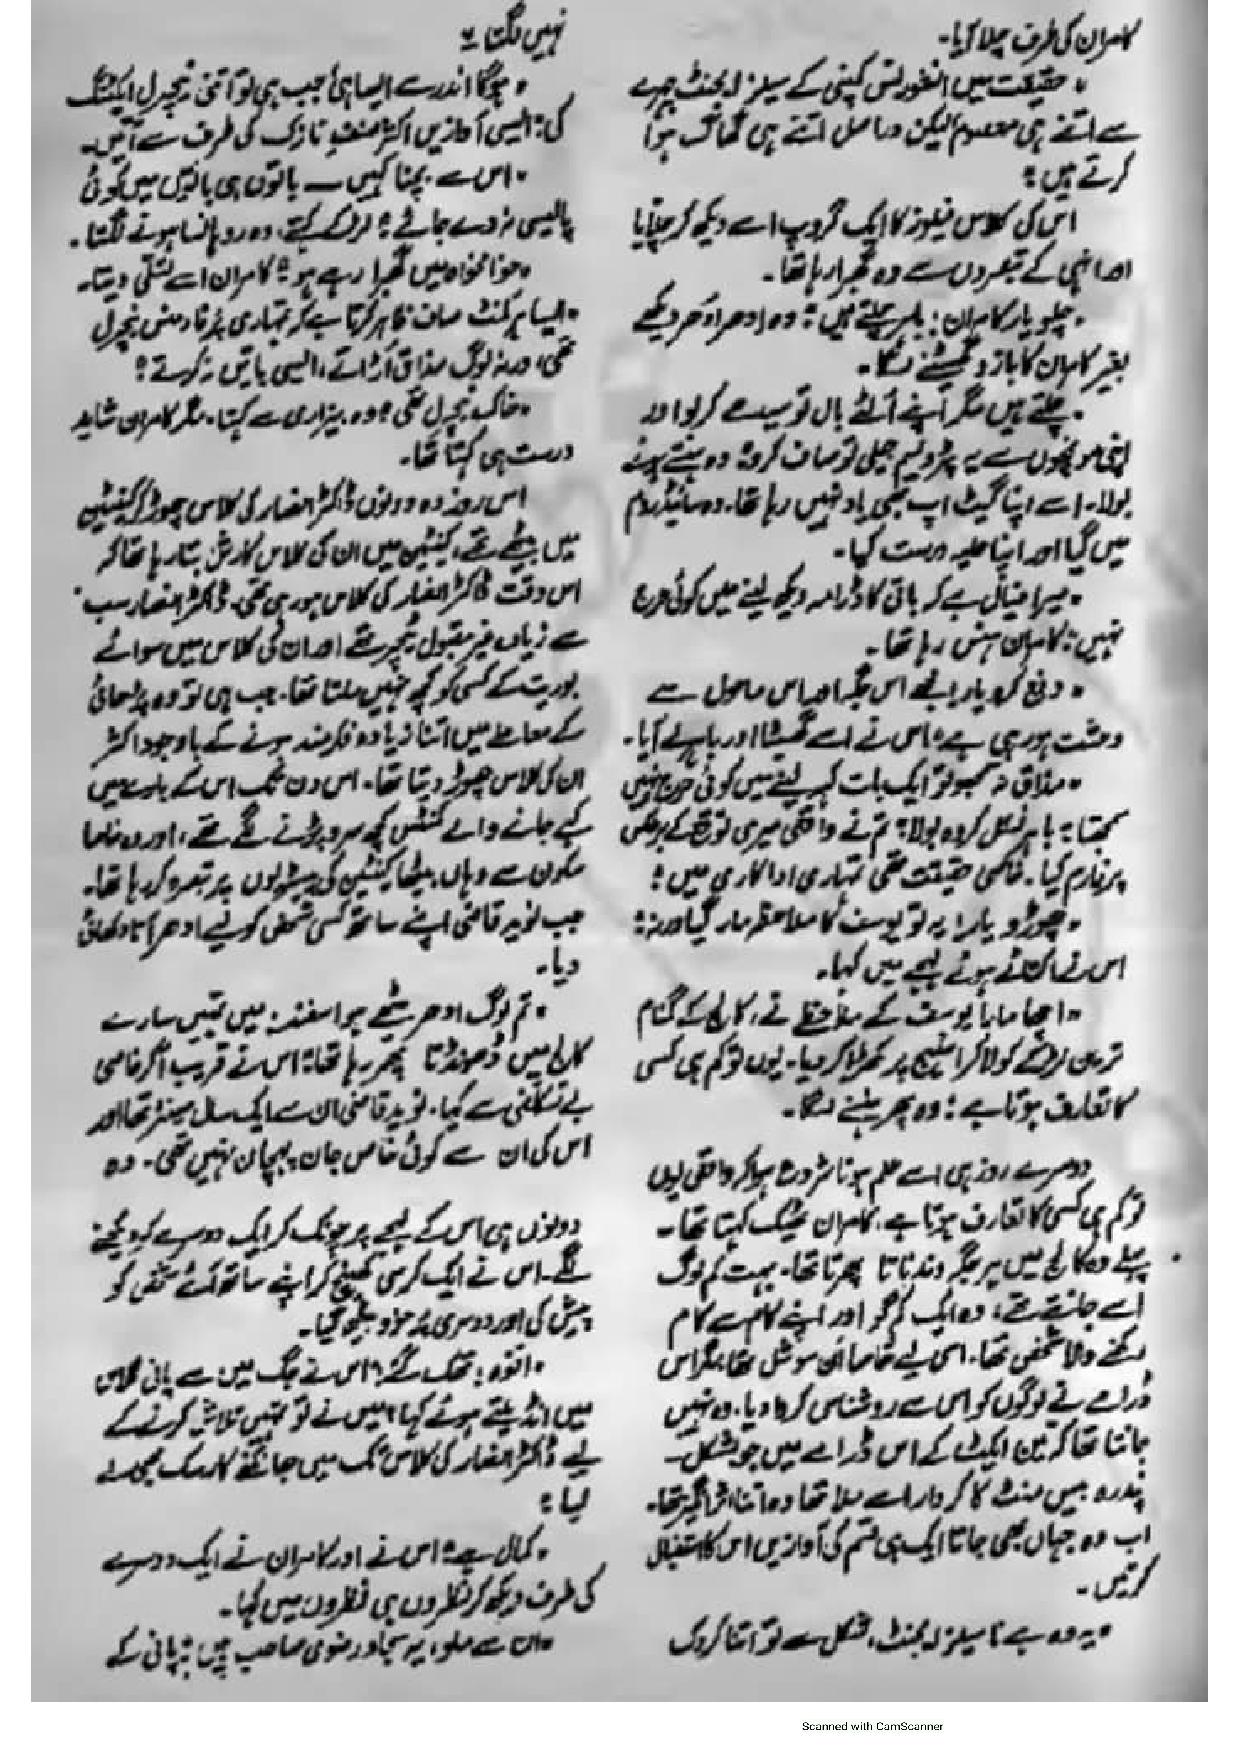 کامران کی طرف چلا آیا۔
"حقیقت میں انشورنس کمپنی کے سیلز ایجنٹ چہرے
سے اتنے ہی معصوم لیکن دراصل اتنے ہی گھاگ ہوا
کرتے ہیں"
اس کی کلاس فیلوز کا ایک گروپ اسے دیکھ کر چلایا
اور انہی کے تبصروں سے وہ گھبرا رہا تھا۔
"چلو یار کامران! باہر چلتے ہیں" وہ ادھر ادھر دیکھے
بغیر کامران کا بازو گھسیٹنے لگا۔
"چلتے ہیں مگر اپنے الٹے بال تو سیدھے کر لو اور
اپنی مونچھوں سے یہ پٹرولیم جیلی تو صاف کرو" وہ ہنستے ہوئے
بولا۔ اسے اپنا گیٹ اپ بھی یاد نہیں رہا تھا۔ وہ سائیڈ روم
میں گیا اور اپنا حلیہ درست کیا۔
"میرا خیال ہے کہ باقی کا ڈرامہ دیکھ لینے میں کوئی حرج
نہیں" کامران ہنس رہا تھا۔
"دفع کرو یار! مجھے اس جگہ اور اس ماحول سے
وحشت ہو رہی ہے" اس نے اسے گھسیٹا اور باہر لے آیا۔
"مذاق نہ سمجھو تو ایک بات کہہ لینے میں کوئی حرج نہیں
سمجھتا" باہر نکل کر وہ بولا "تم نے واقعی میری توقع کے برعکس
پرفارم کیا۔ خاصی حقیقت تھی تمہاری اداکاری میں"
"چھوڑو یار! یہ تو یوسف کا ملاحظہ مار گیا ورنہ"
اس نے اکتائے ہوئے لہجے میں کہا۔
"اچھا مایا یوسف کے ملاحظے نے، کالج کے گمنام
ترین لڑکے کو لا کر اسٹیج پر کھڑا کر دیا۔ یوں تو کم ہی کسی
کا تعارف ہوتا ہے" وہ پھر ہنسنے لگا۔
دوسرے روز ہی اسے علم ہونا شروع ہوا کہ واقعی یوں
تو کم ہی کسی کا تعارف ہوتا ہے، کامران ٹھیک کہتا تھا۔
پہلے وہ کالج میں ہر جگہ دندناتا پھرتا تھا۔ بہت کم لوگ
اسے جانتے تھے، وہ ایک کم گو اور اپنے کام سے کام
رکھنے والا شخص تھا۔ اسی لیے خاصا ان سوشل تھا مگر اس
ڈرامے نے لوگوں کو اس سے روشناس کروا دیا۔ وہ نہیں
جانتا تھا کہ ون ایکٹ کے اس ڈرامے میں جو بمشکل
پندرہ بیس منٹ کا کردار اسے ملا تھا وہ اتنا اثر انگیز تھا۔
اب وہ جہاں بھی جاتا ایک ہی قسم کی آوازیں اس کا استقبال
کرتیں۔
"یہ وہ ہے نا سیلز ایجنٹ، شکل سے تو اتنا کردک
نہیں لگتا"
"ہوگا اندر سے ایسا ہی جب ہی تو اتنی نیچرل ایکٹنگ
کی" ایسی آوازیں اکثر صنفِ نازک کی طرف سے آتیں۔
"اس سے بچنا کہیں — باتوں ہی باتوں میں کوئی
پالیسی نہ دے جائے" لڑکے کہتے، وہ روہانسا ہونے لگتا۔
"خوامخواہ میں گھبرا رہے ہو" کامران اسے تسلی دیتا۔
"ایسا ہر کمنٹ صاف ظاہر کرتا ہے کہ تمہاری پرفارمنس نیچرل
تھی، ورنہ لوگ مذاق اڑاتے، ایسی باتیں نہ کرتے"
"خاک نیچرل تھی" وہ بیزاری سے کہتا۔ مگر کامران شاید
درست ہی کہتا تھا۔
اس روز وہ دونوں ڈاکٹر انصار کی کلاس چھوڑ کے کینٹین
میں بیٹھے تھے، کینٹین میں ان کی کلاس کا رش بتا رہا تھا کہ
اس وقت ڈاکٹر انصار کی کلاس ہو رہی تھی۔ ڈاکٹر انصار سب
سے زیادہ غیر مقبول ٹیچر تھے اور ان کی کلاس میں سوائے
بوریت کے کسی کو کچھ نہیں ملتا تھا۔ جب ہی تو وہ پڑھائی
کے معاملے میں اتنا زیادہ فکرمند ہونے کے باوجود اکثر
ان کی کلاس چھوڑ دیتا تھا۔ اس دن تک اس کے بارے میں
کیے جانے والے کمنٹس کچھ سرد پڑنے لگے تھے، اور وہ خاصا
سکون سے وہاں بیٹھا کینٹین کی پیٹیوں پر تبصرہ کر رہا تھا۔
جب نوید قاضی اپنے ساتھ کسی شخص کو لیے ادھر آتا دکھائی
دیا۔
"تم لوگ ادھر بیٹھے ہو اسفند! میں تمہیں سارے
کالج میں ڈھونڈتا پھر رہا تھا" اس نے قریب آکر خاصی
بے تکلفی سے کہا۔ نوید قاضی ان سے ایک سال سینئر تھا اور
اس کی ان سے کوئی خاص جان پہچان نہیں تھی۔ وہ
دونوں ہی اس کے لہجے پر چونک کر ایک دوسرے کو دیکھنے
لگے۔ اس نے ایک کرسی کھینچ کر اپنے ساتھ آئے شخص کو
پیش کی اور دوسری پر خود بیٹھ گیا۔
"افوہ! تھک گئے" اس نے جگ میں سے پانی گلاس
میں انڈیلتے ہوئے کہا "میں نے تو تمہیں تلاش کرنے کے
لیے ڈاکٹر انصار کی کلاس تک میں جانے کا رسک بھی لے
لیا"
"کمال ہے" اس نے اور کامران نے ایک دوسرے
کی طرف دیکھ کر نظروں ہی نظروں میں کہا۔
"ان سے ملو، یہ سجاد رضوی صاحب ہیں" پانی کے
Scanned with CamScanner